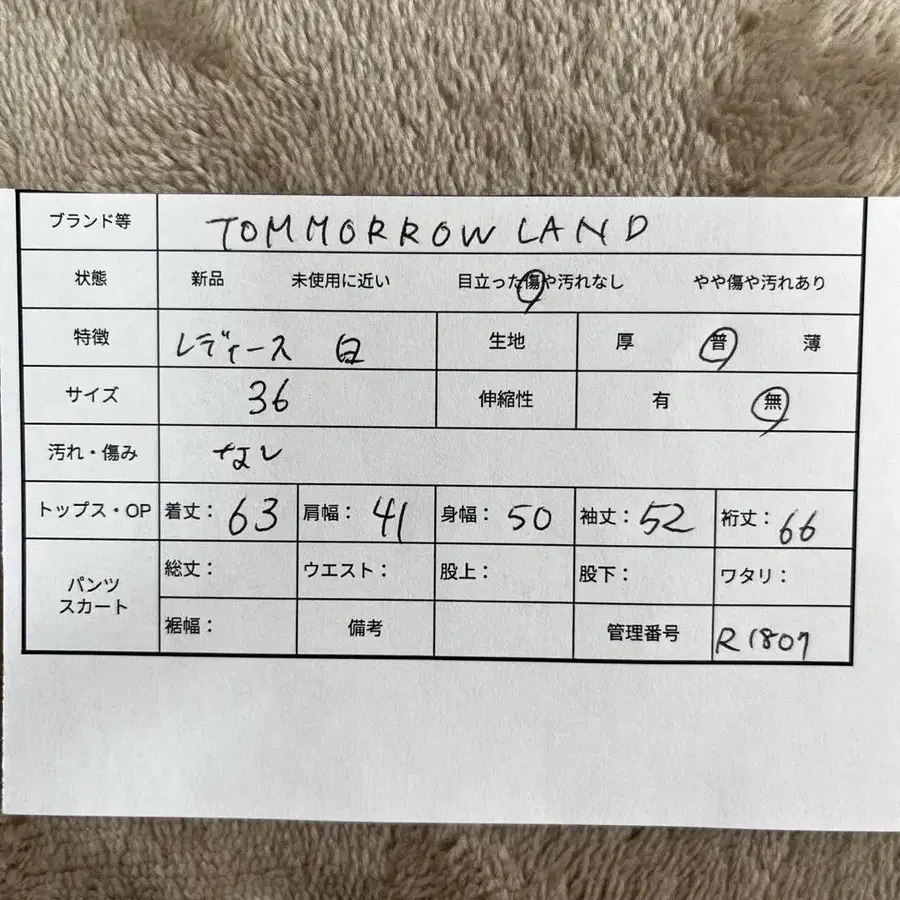 ブランド等 TOMMORROW LAND
状態 新品 未使用に近い 目立った傷や汚れなし やや傷や汚れあり
特徴 レディース 白 生地 厚 普 薄
サイズ 36 伸縮性 有 無
汚れ・傷み なし
トップス・OP 着丈: 63 肩幅: 41 身幅: 50 袖丈: 52 裄丈: 66
パンツ スカート 総丈: ウエスト: 股上: 股下: ワタリ:
裾幅: 備考 管理番号 R1807